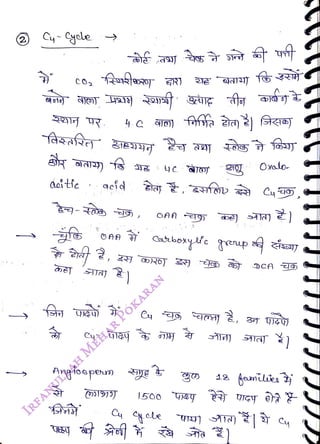 ② C4-Cycle →
कोर्ट तथा चेक ने गन्ने की पत्ती
में CO2 स्थिरीकरण द्वारा यह बताया कि उसमें
बनने वाला प्रथम स्थायी उत्पाद तीन कार्बन के
स्थान पर 4 C वाला निर्मित होता है। जिसका
विस्तारित अध्ययन हैच तथा स्लेक ने किया
और बताया कि यह 4C वाला अणु Oxalo-
acitic acid होता है, इसलिए इसे C4 चक्र,
हैच-स्लेक चक्र, OAA चक्र कहा जाता है।
→ चूंकि OAA में Carboxylic group की संख्या
दो होती है, इस कारण इस चक्र को DCA चक्र
कहा जाता है।
→ जिन पादपों में C4 चक्र चलता है, उन पादपों
को C4 पादप के नाम से जाना जाता है।
→ Angiosperm समूह के कुल 18 families में
से लगभग 1500 पादप ऐसे होते है
जिनमें C4 Cycle पाया जाता है। ये C4
पादप की श्रेणी में रखे जाते है।
IRFANULLAH MEHAR POKARAN